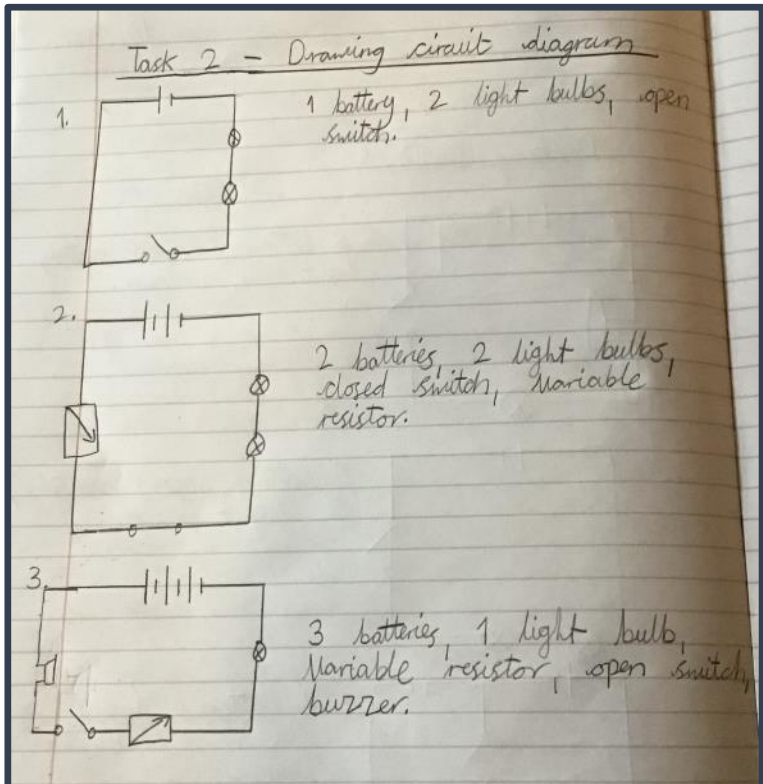 Task 2 - Drawing circuit diagram
1.
1 battery, 2 light bulbs, open
switch.
2.
2 batteries, 2 light bulbs,
closed switch, variable
resistor.
3.
3 batteries, 1 light bulb,
variable resistor, open switch,
buzzer.